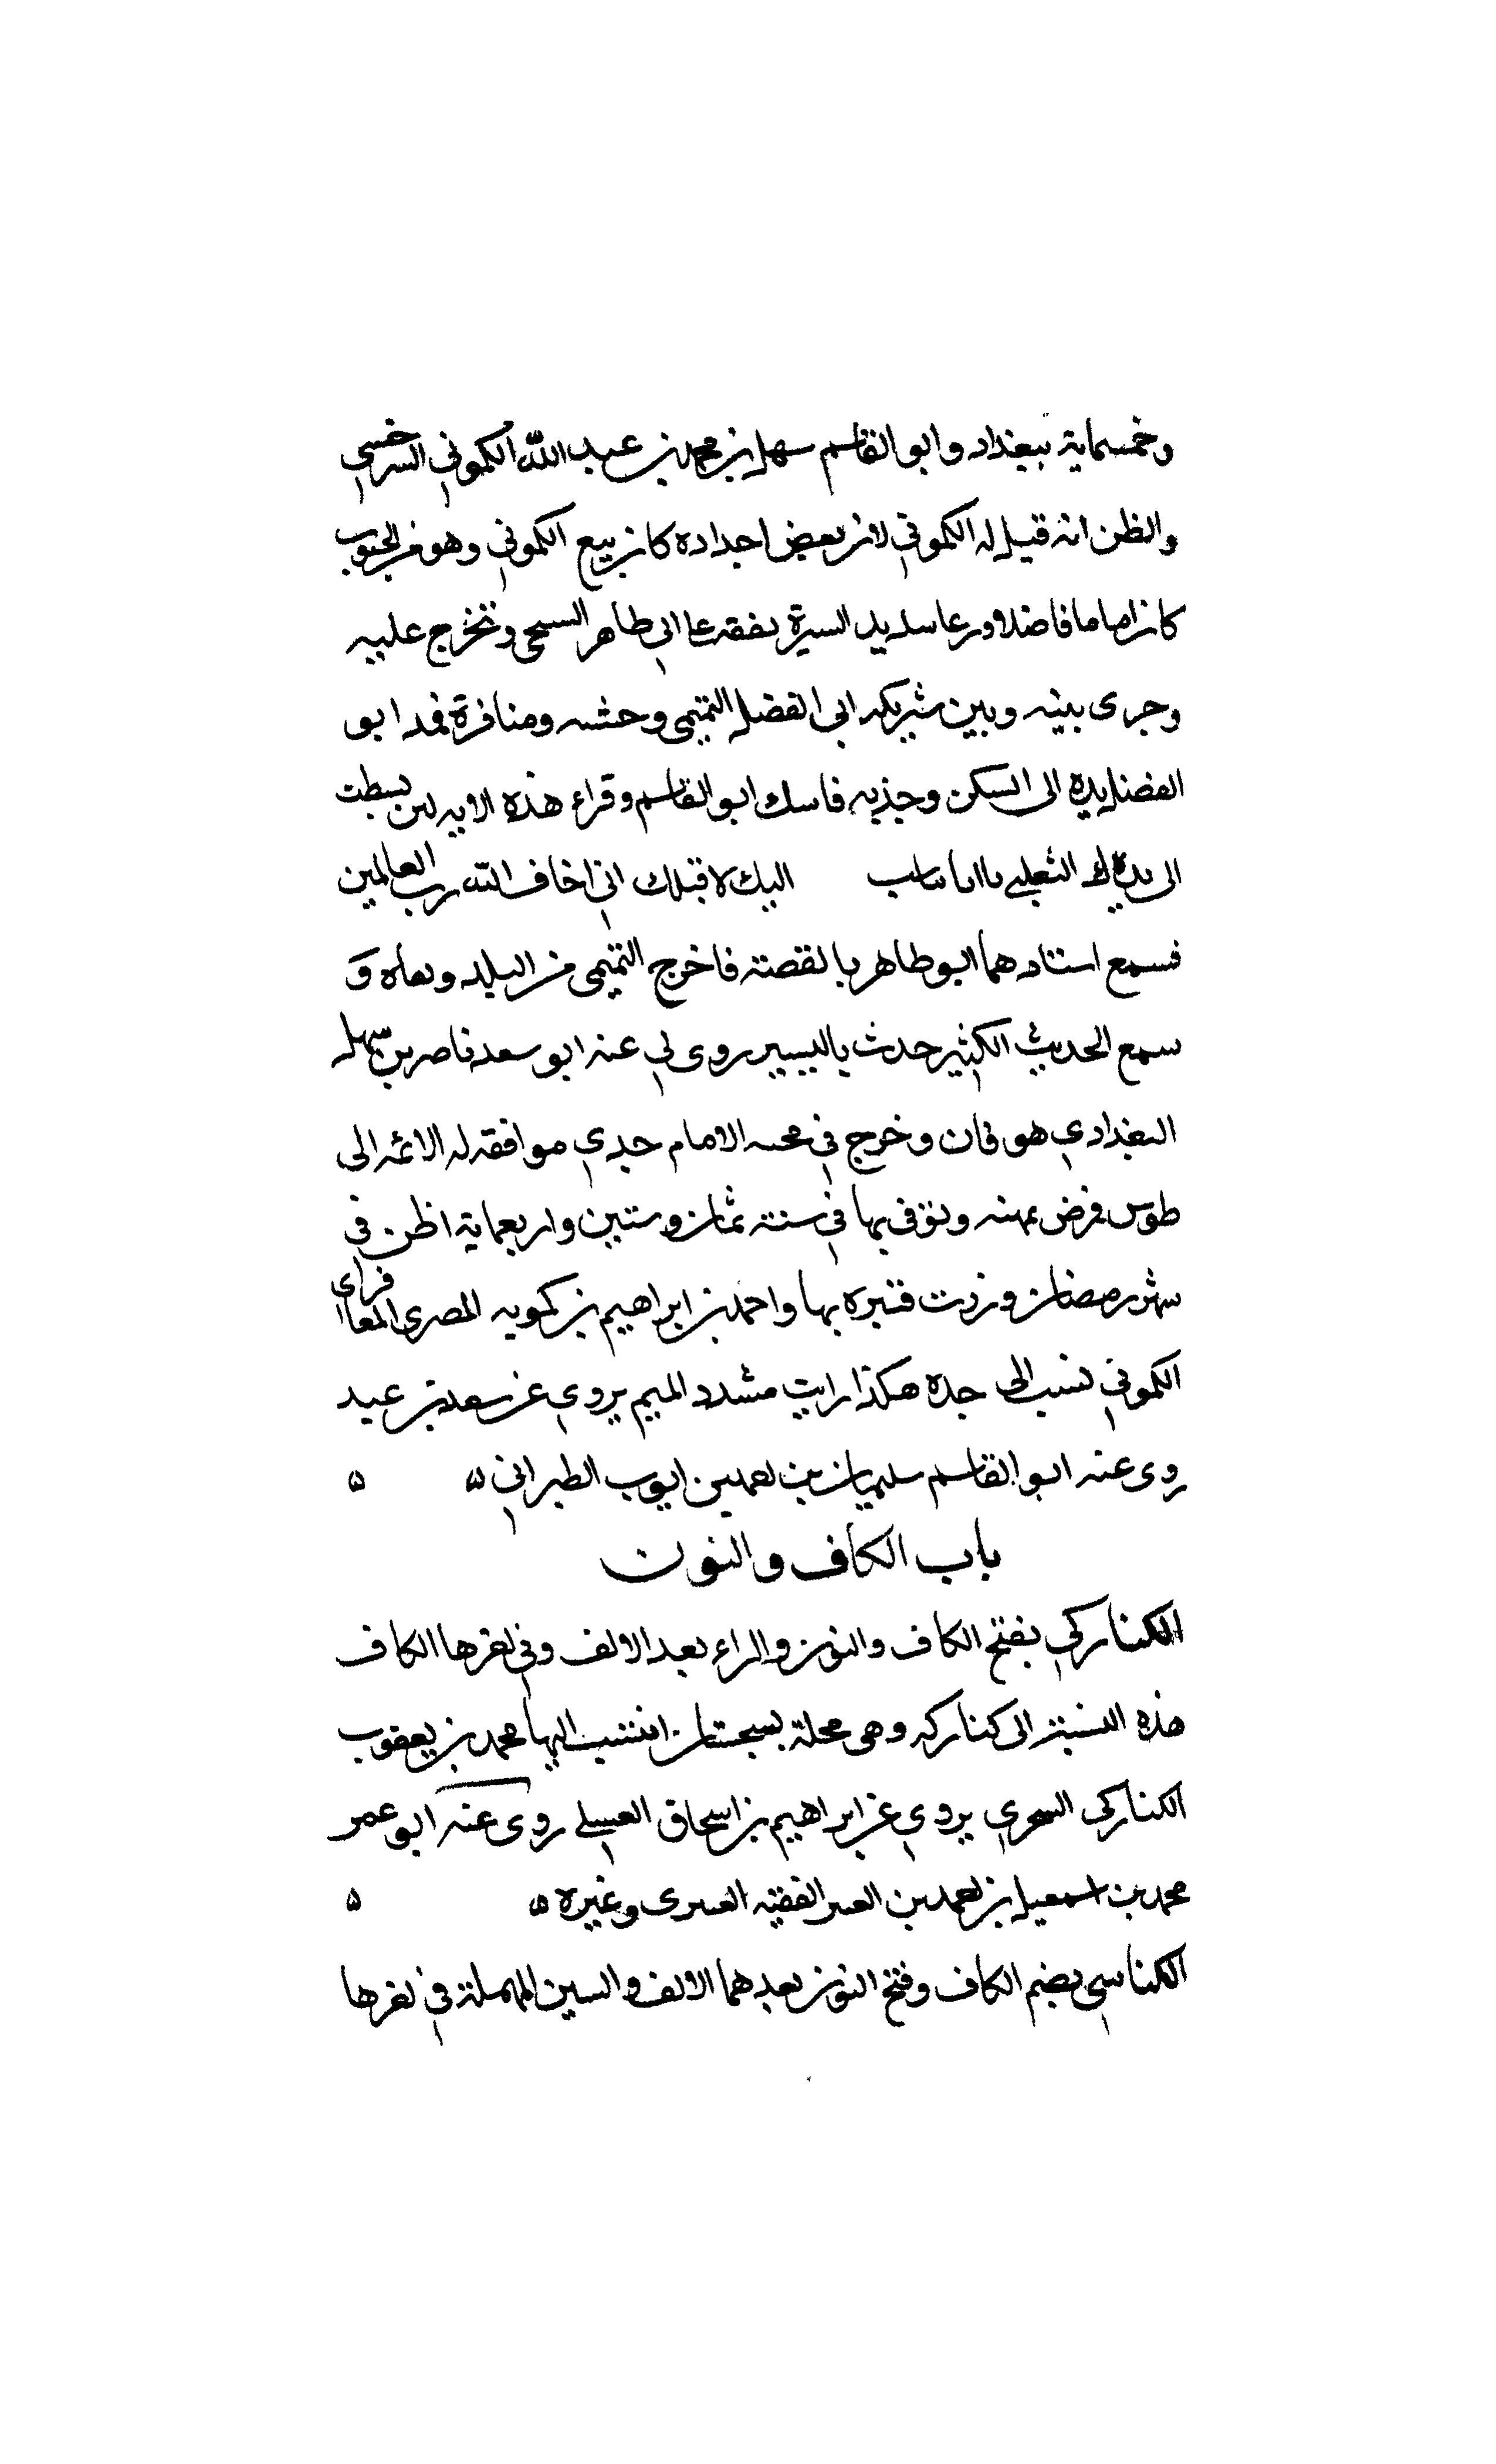 وخمسماية ببغداد وابو القاسم سهل بن محمد بن عبد الله الكموني السرخسي
والظن انه قيل له الكموني لان بعض اجداده كان يبيع الكموني وهو من الحبوب
كان اماما فاضلا ورعا سديد السيرة تفقه على ابي طاهر السنجي وتخرج عليه
وجرى بينه وبين شريكه ابي الفضل التميمي وحشه ومنافرة فمد ابو
الفضل يده الى السكين وجذبه فامسك ابو القاسم وقراء هذه الايه لئن بسطت
الى يدك لتقتلني ما انا بباسط اليك لاقتلك اني اخاف الله رب العالمين
فسمع استادهما ابو طاهر بالقصة فاخرج التميمي من البلد ونفاه و
سمع الحديث الكثير حدث باليسير روى لي عنه ابو سعد ناصر بن سهل
البغدادي هو فان وخرج في الامام جدي موافقه له الائمه الى
طوس فمرض بميهنه وتوفى بها في سنة ثمان وستين واربعماية اظن في
شهر رمضان وزرت قبره بها واحمد بن ابراهيم بن كمويه المصري المعافراي
الكموني نسب الى جده هكذا رايت مشدد الميم يروي عن سعد بن عبيد
روى عنه ابو القاسم سليمان بن احمد بن ايوب الطبراني ه ه
باب الكاف والنون
الكناركي بفتح الكاف والنون والراء بعد الالف وفي اخرها الكاف
هذه النسبة الى كناركه وهي محلة بسجستان انتسب اليها محمد بن يعقوب
الكناركي السجزي يروي عن ابراهيم بن اسحاق روى عنه ابو عمر
محمد بن اسمعيل بن احمد بن الفقيه العنبري وغيره ه ه
الكناسي بضم الكاف وفتح النون بعدهما الالف والسين المهملة في اخرها